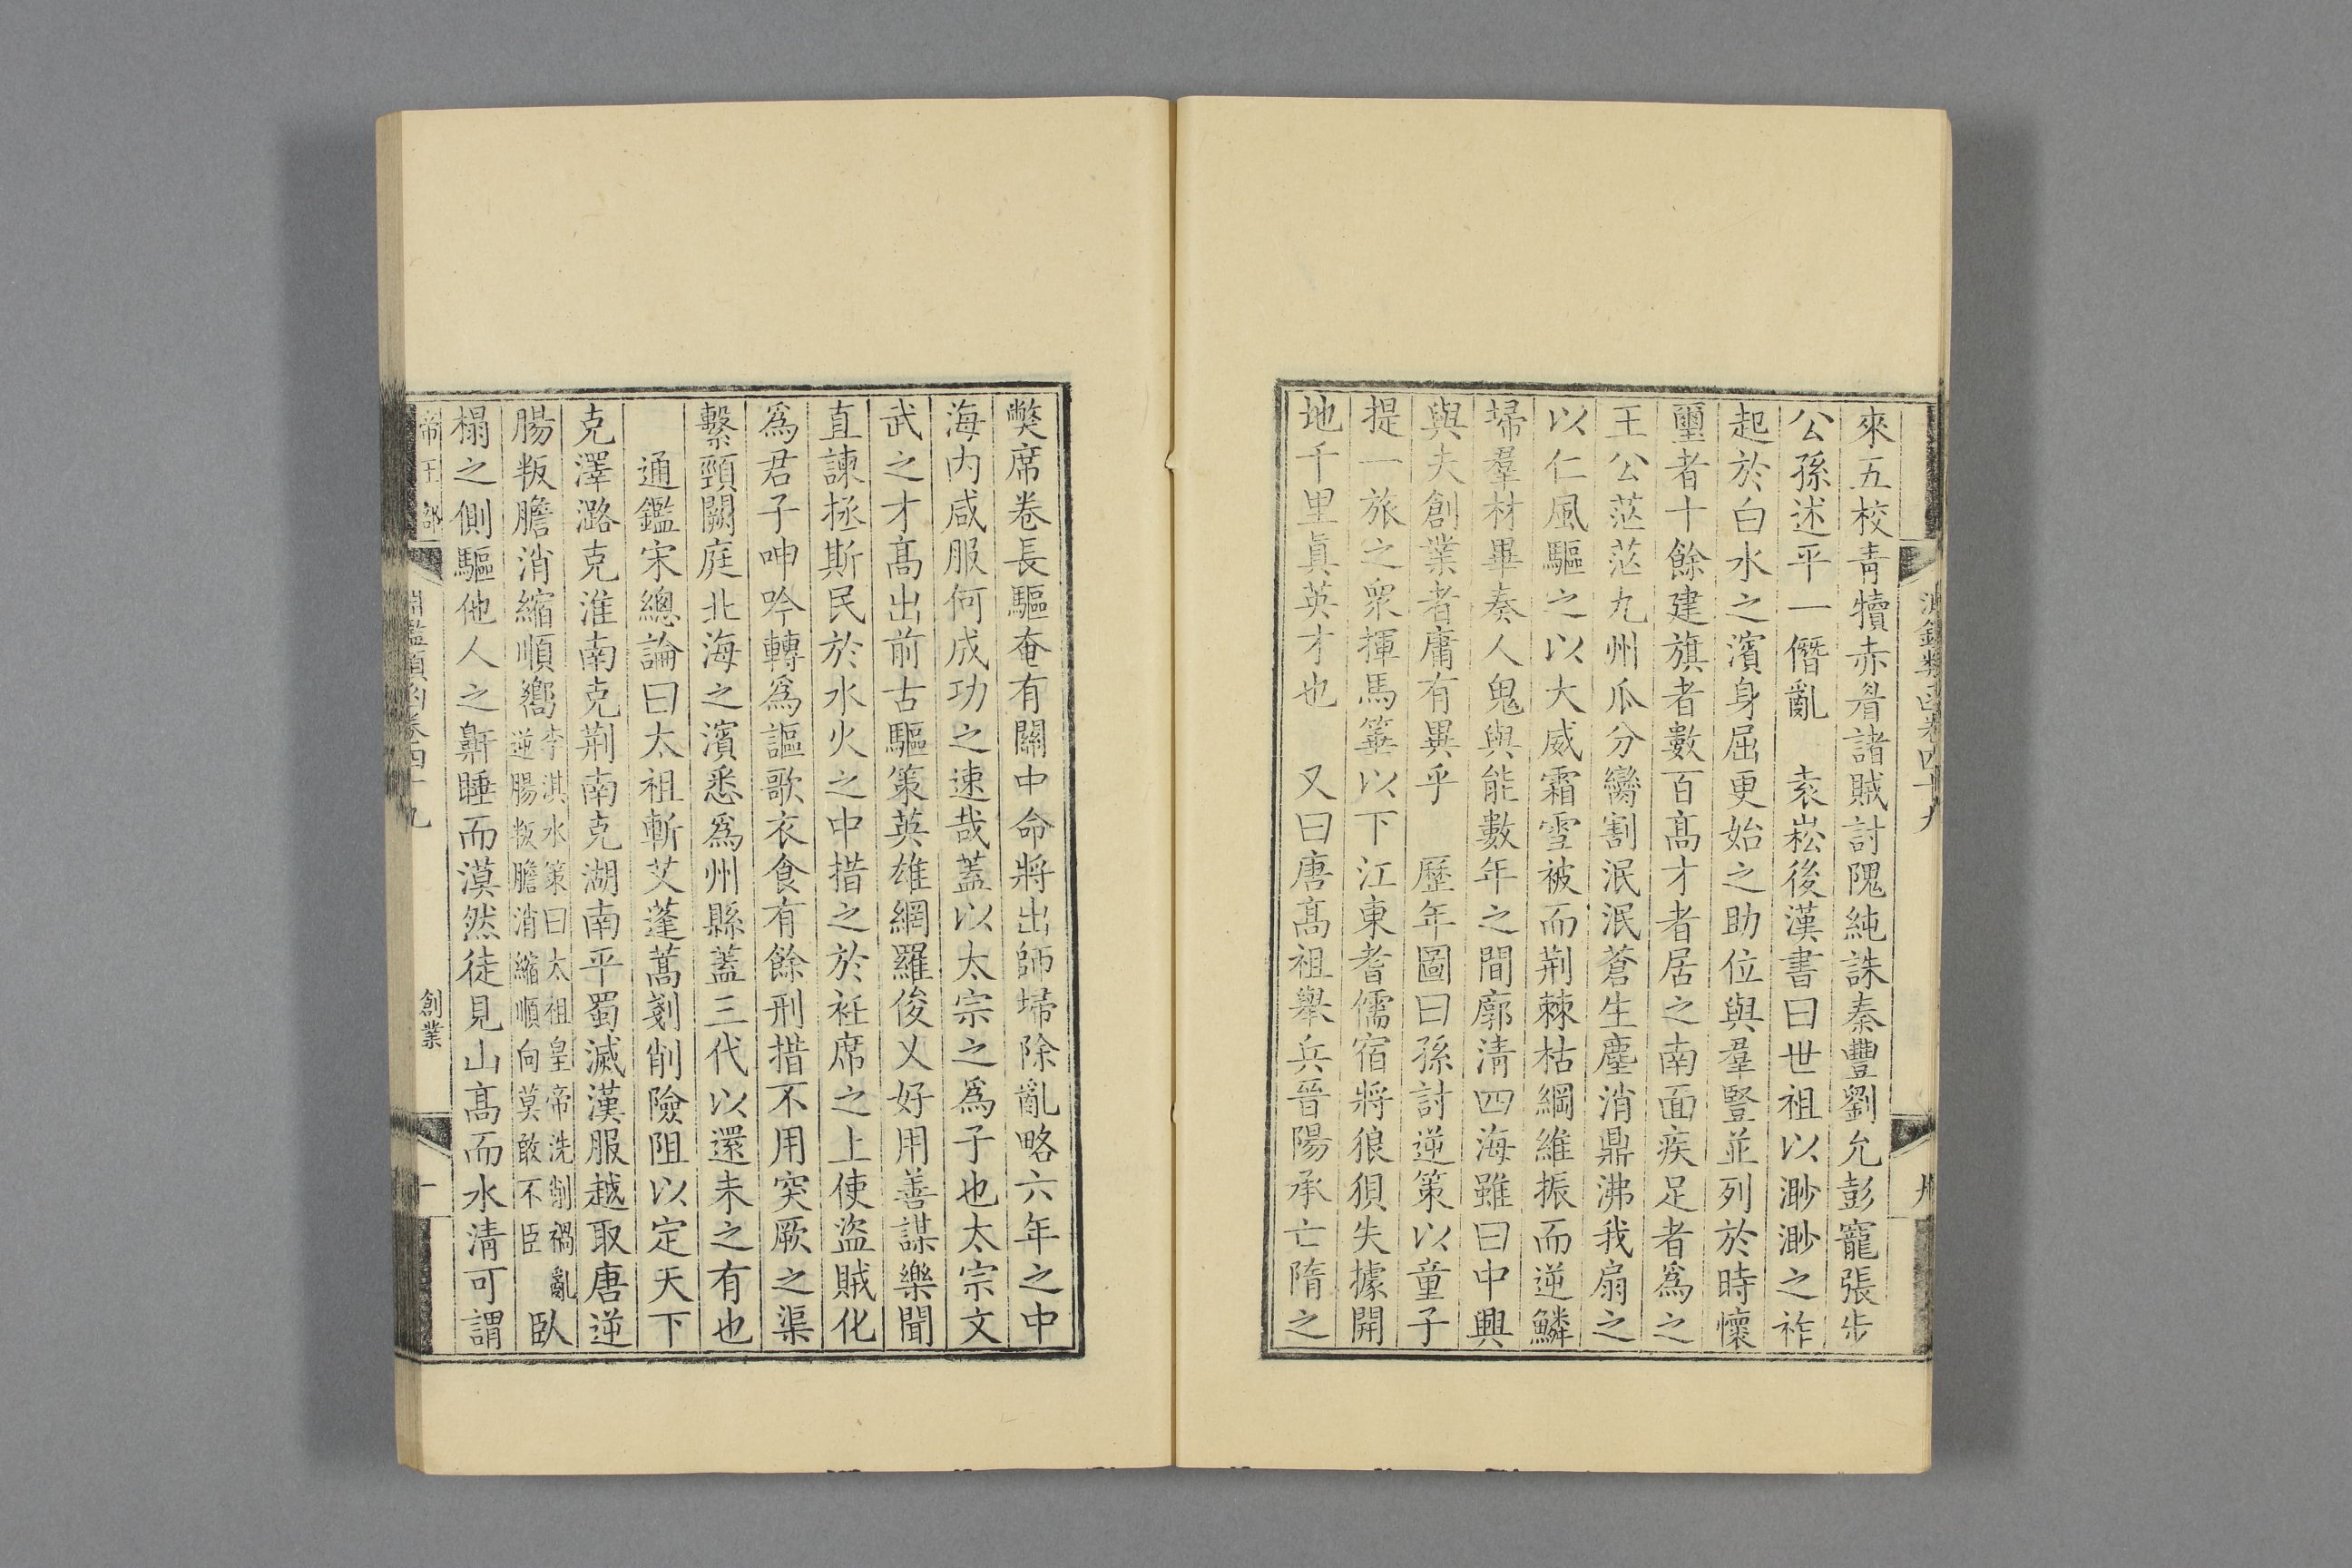 來五校青犢赤眉諸賊討隗純誅秦豐劉允彭寵張步
公孫述平一僭亂　袁崧後漢書曰世祖以渺渺之祚
起於白水之濱身屈更始之助位與羣豎並列於時懷
璽者十餘建旗者數百髙才者居之南面疾足者爲之
王公茫茫九州瓜分臠割泯泯蒼生塵消鼎沸我扇之
以仁風驅之以大威霜雪被而荆棘枯綱維振而逆鱗
埽羣材畢奏人鬼與能數年之間廓清四海雖曰中興
與夫創業者庸有異乎　歷年圖曰孫討逆策以童子
提一旅之衆揮馬箠以下江東耆儒宿將狼狽失據開
地千里眞英才也　又曰唐髙祖舉兵晉陽承亡隋之
弊席卷長驅奄有關中命將出師埽除亂略六年之中
海内咸服何成功之速哉蓋以太宗之爲子也太宗文
武之才髙出前古驅策英雄網羅俊乂好用善謀樂聞
直諫拯斯民於水火之中措之於衽席之上使盜賊化
爲君子呻吟轉爲謳歌衣食有餘刑措不用突厥之渠
繫頸闕庭北海之濱悉爲州縣蓋三代以還未之有也
通鑑宋總論曰太祖斬艾蓬蒿剗削險阻以定天下
克澤潞克淮南克荆南克湖南平蜀滅漢服越取唐逆
腸叛膽消縮順嚮李淇水策曰太祖皇帝洗削禍亂逆腸叛膽消縮順向莫敢不臣臥
榻之側驅他人之鼾睡而漠然徒見山髙而水清可謂
帝王部　淵鑑類函卷四十九　創業　十